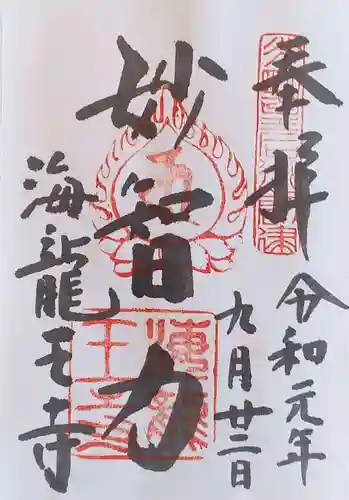 奉拝
令和元年
九月廿二日
妙智力
海龍王寺